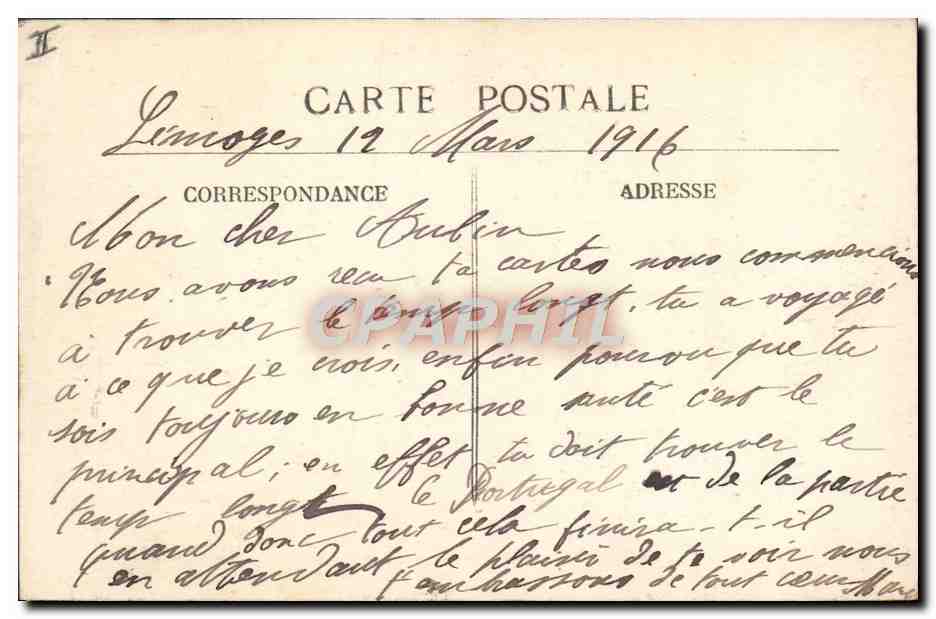 II
CARTE POSTALE
Limoges 12 Mars 1916
CORRESPONDANCE
ADRESSE
Mon cher Aubin
Nous avons recu ta cartes nous commencions
à trouver le temps longt, tu a voyagé
à ce que je crois, enfin pourvu que tu
sois toujours en bonne santé c'est le
principal; en effet tu doit trouver le
temp longt le Portugal est de la partie
quand donc tout cela finira-t-il
en attendant le plaisir de te voir nous
t'embrassons de tout coeur
CPAPHIL